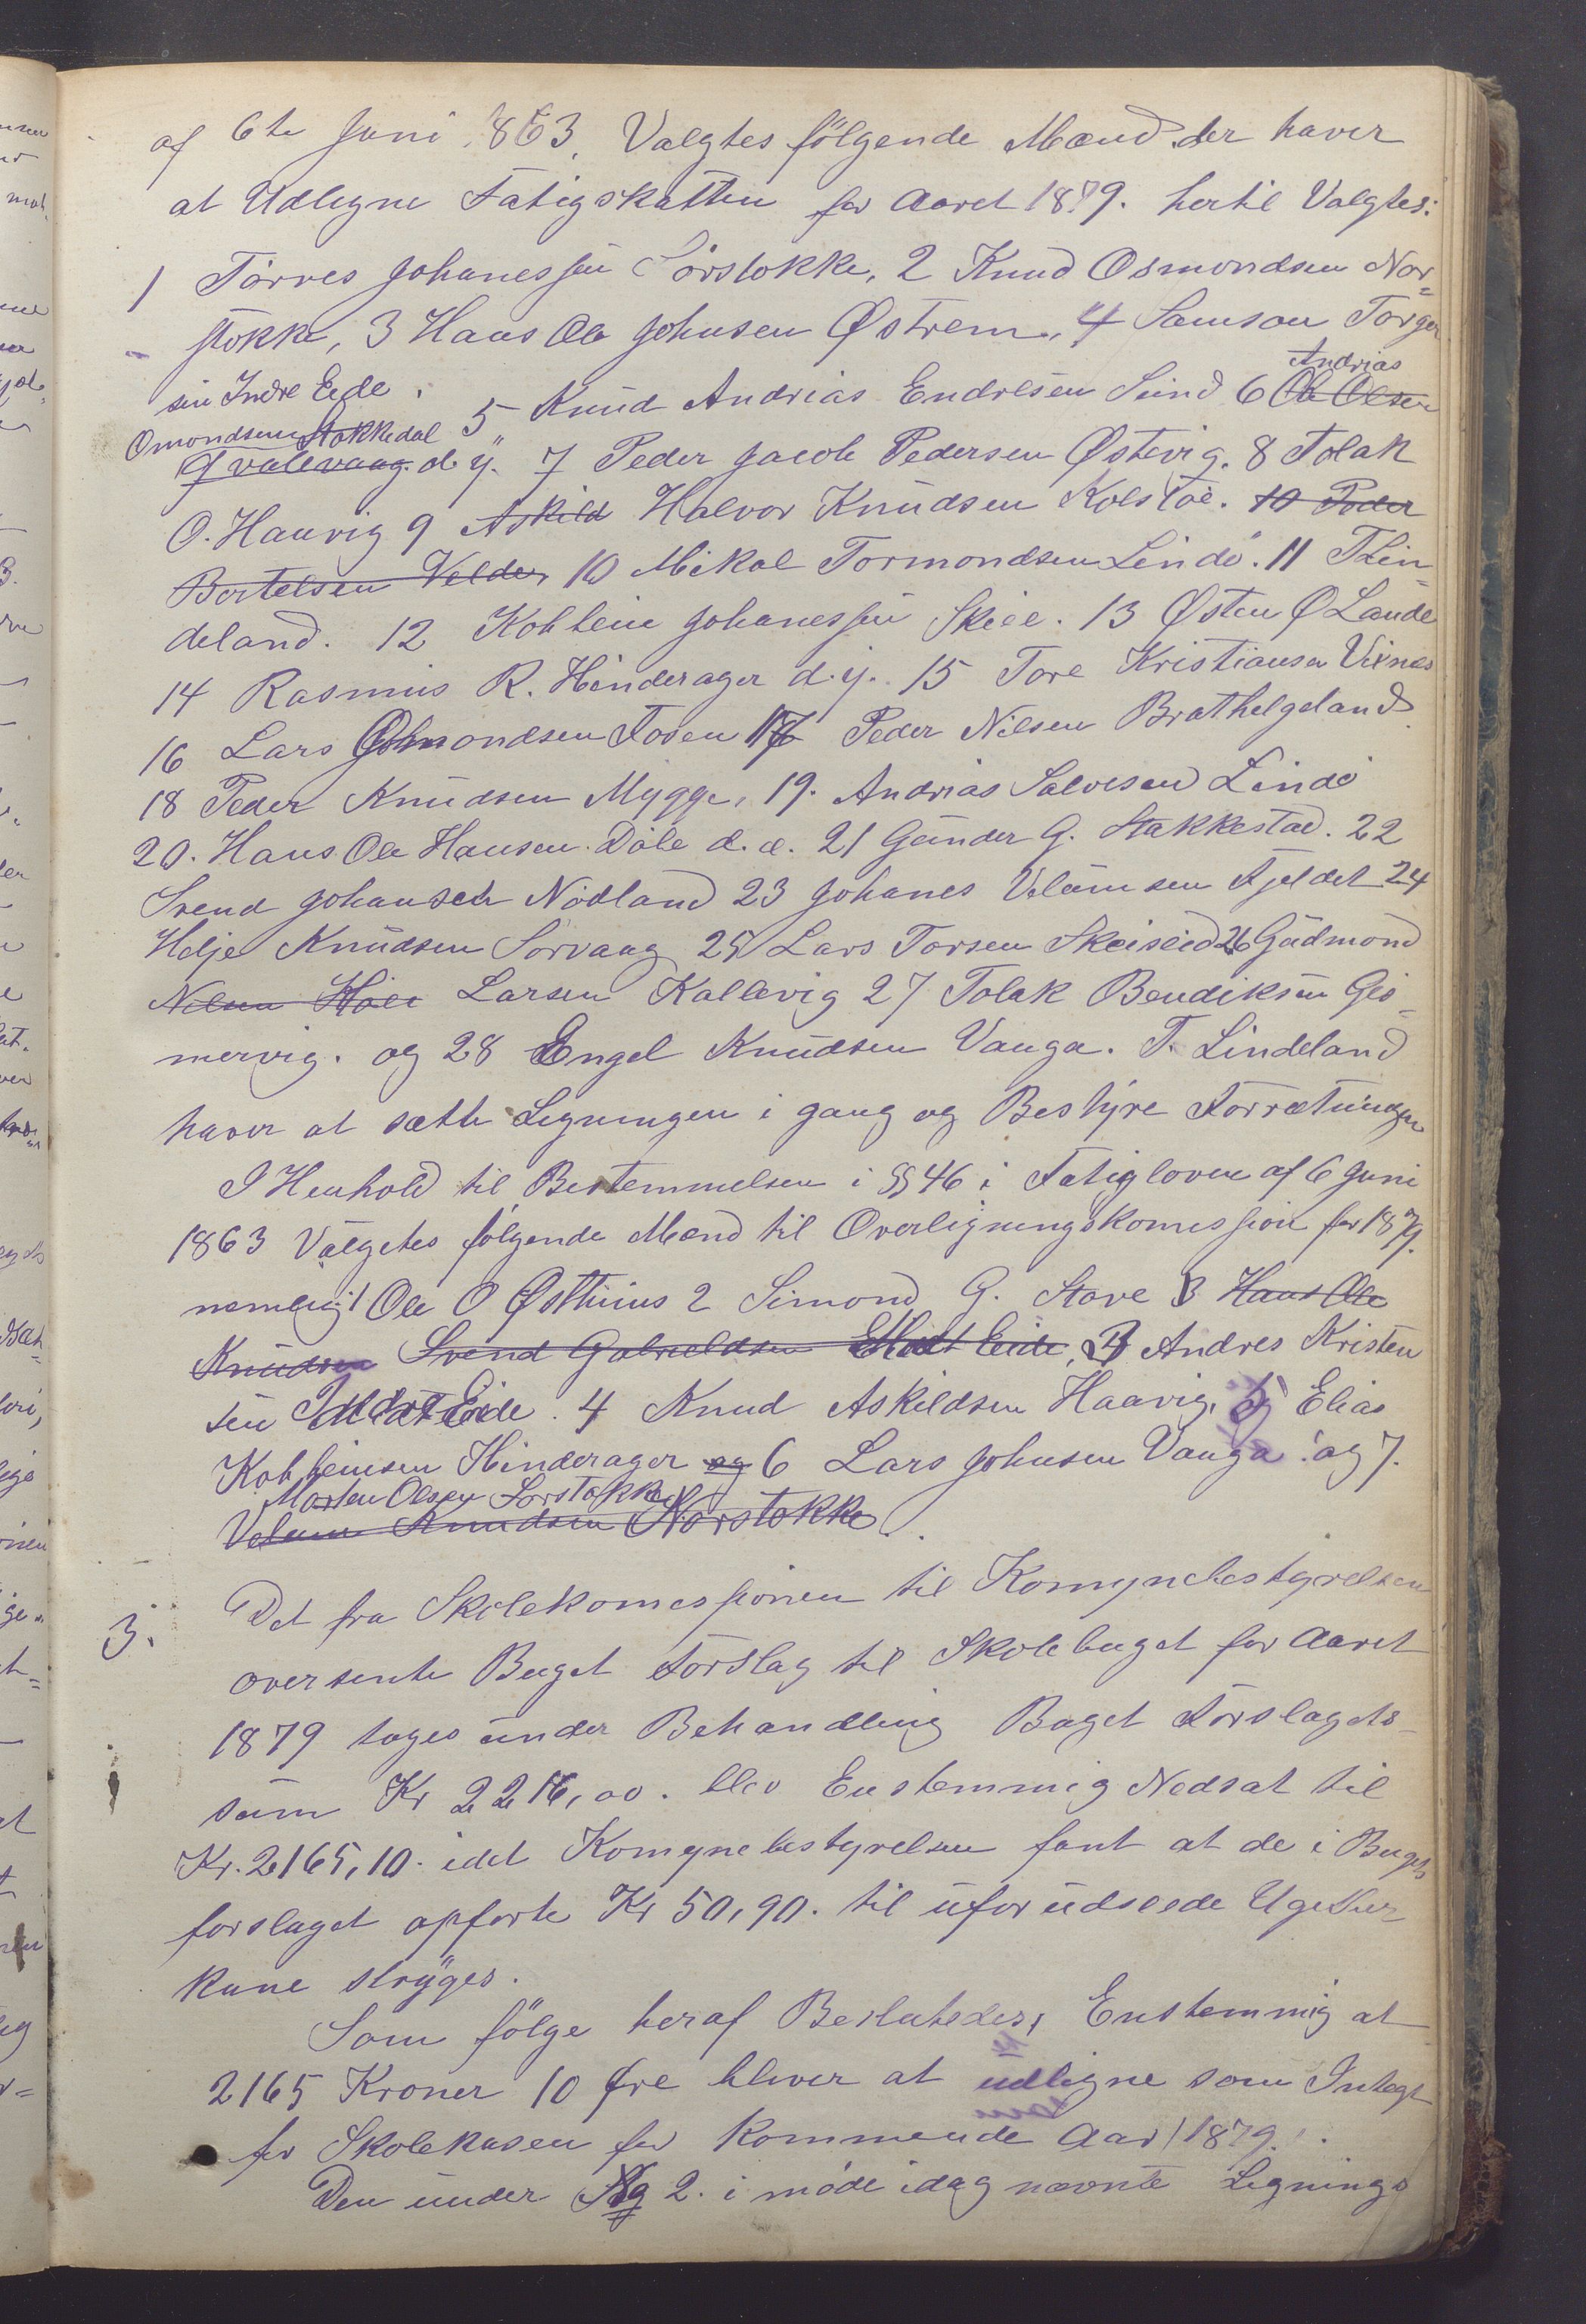 af 6te Juni 1863 Valgtes følgende Mænd der haver
at Udligne Fatigskatten for Aaret 1879. hertil Valgtes:
1 Torres Johanessen Sørstokke, 2 Knud Osmondsen Nor=
stokke, 3 Hans Ole Johnsen Østrem, 4 Samson Torger
sen Indre Eide. 5 Knud Andrias Endresen Sund 6 Ole Olsen
Andrias
Omondsen Stokkedal
Qvalevaag d. y. 7 Peder Jacob Pedersen Østevig. 8 Tolak
O. Hauvig 9 Askild Halvor Knudsen Kolstøe. 10 Peder
Bertelsen Velde, 10 Mikal Tormondsen Lindø. 11 T Lin=
deland. 12 Kolbein Johanessen Skeie. 13 Østen Ø Lande
14 Rasmus R. Hinderager d. y. 15 Tore Kristiansen Vixnes
16 Lars Omondsen Fosen 17 Peder Nilsen Brathelgeland
18 Peder Knudsen Mygge, 19. Andrias Salvesen Lindø
20. Hans Ole Hansen Dale d. æ. 21 Gunder G. Stakkestad. 22
Svend Johansen Nodland 23 Johanes Velumsen Fjeldet 24
Helje Knudsen Sørvaag 25 Lars Torsen Skeiseid 26 Gudmond
Nilsen Larsen Kallevig 27 Tolak Bendiksen Gis=
mervig. og 28 Engel Knudsen Vanga. T. Lindeland
haver at sætte Ligningen i gang og Bestyre Forretningen
I Henhold til Bestemmelsen i §§ 46 i Fatigloven af 6 Juni
1863 Valgtes følgende Mænd til Overligningskomission for 1879.
nemlig 1 Ole O Østhuus 2 Simond G. Stave 3 Hans Ole
Knudsen Svend Gabrieldsen Midt Eide, 3 Andres Kristen
sen Indre Eide. 4 Knud Askildsen Haavig, 5 Elias
Kolbeinsen Hinderager og 6 Lars Johnsen Vanga. og 7.
Morten Olsen Sørstokke
Velum Knudsen Norstokke.
3. Det fra Skolekomissionen til Komynebestyrelsen
oversente Buget Forslag til Skolebuget for Aaret
1879 toges under Behandling Buget Forslagets
sum Kr 2216,00. blev Enstemmig Nedsat til
Kr. 2165,10. idet Komynebestyrelsen fant at de i Buget
forslaget opførte Kr 50,90. til uforudseede Ugifter
kune stryges.
Som følge heraf Beslutedes, Enstemmig at
2165 Kroner 10 Øre bliver at udligne som Integt
for Skolekasen for Kommende Aar 1879.
Den under Sag 2. i møde idag nævnte Lignings